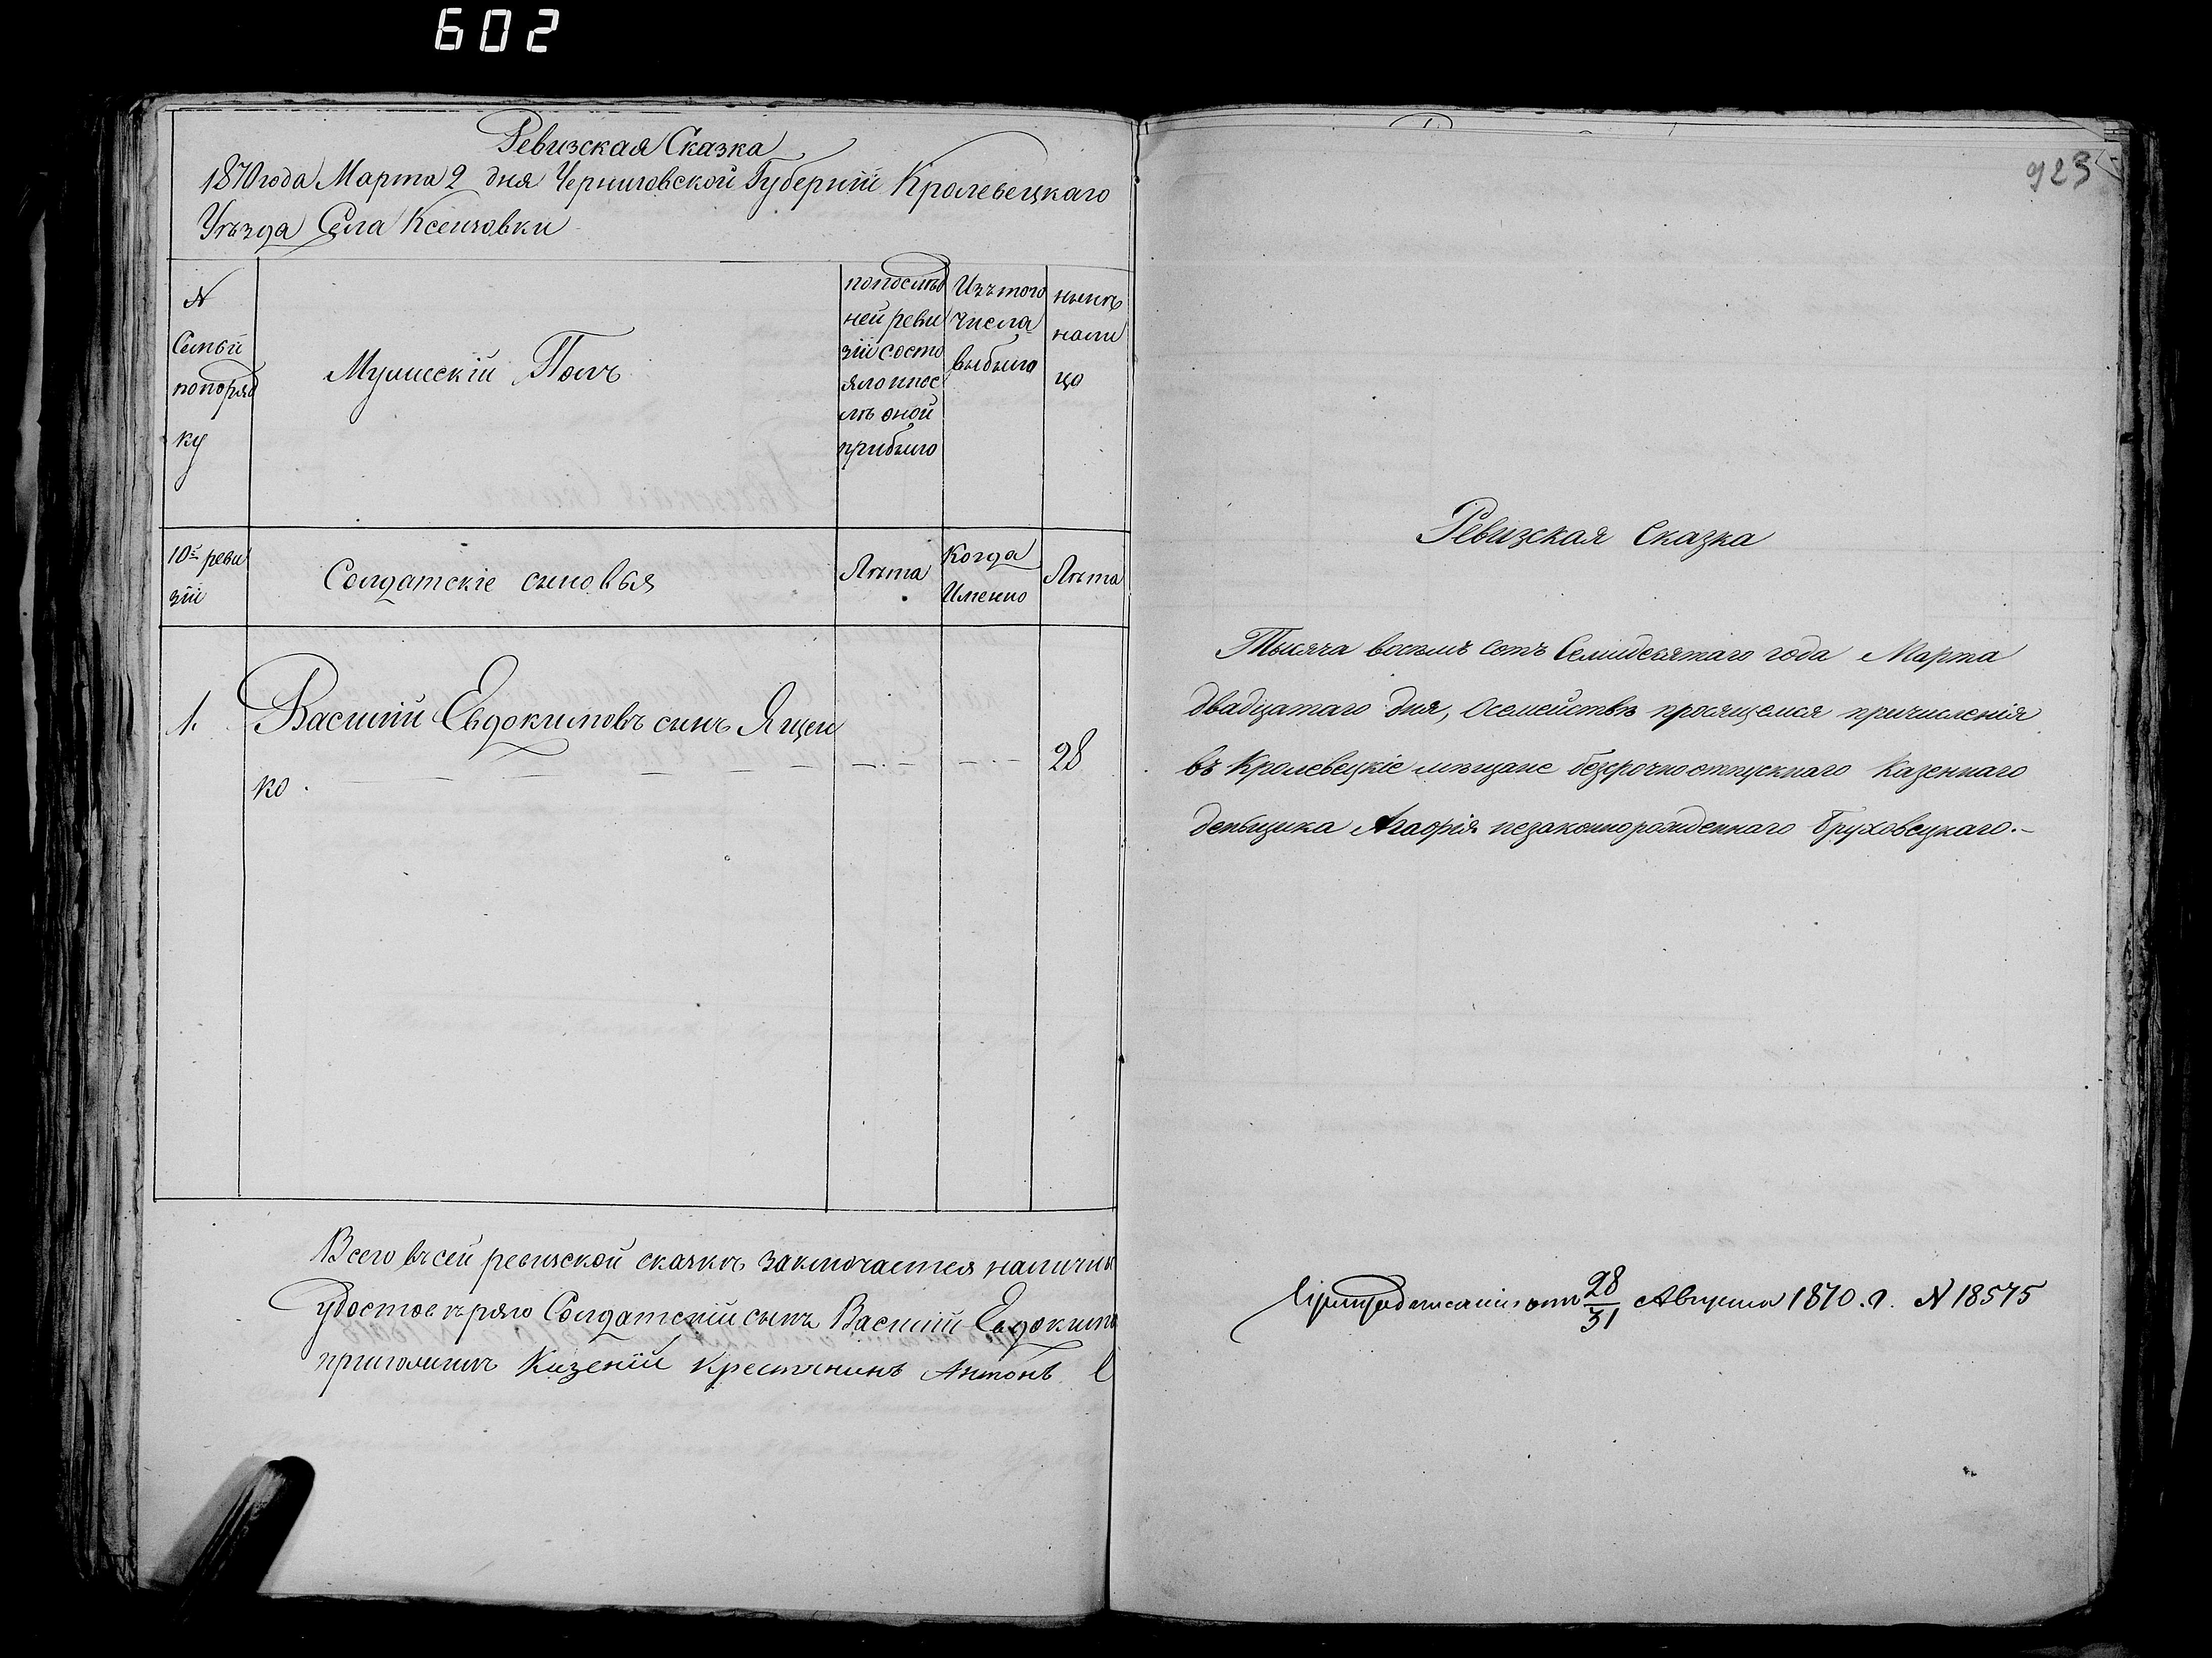 602
Ревизская Сказка
1870 года Марта 2 дня Черниговской Губерніи Кролевецкаго
Уѣзда Села Ксензовки
N
Семьи
попоряд
ку
Мужескій Полъ
попослѣд
ней реви
зіи состо
яло ипос
лѣ оной
прибыло
Изъ того
числа
выбыло
нынѣ
нали
цо
10й реви
зіи
Солдатскіе сыновья
Лѣта
Когда
Именно
Лѣта
1.
Василій Евдокимовъ сынъ Ящен
ко.
28
Всего въ сей ревизской сказкѣ заключается наличны
удостовѣряю Солдатскій сынъ Василій Евдокимо
Казеній крестянинъ Антонъ
923
Ревизская Сказка
Тысяча восемь сотъ Семидесятаго года Марта
двадцатаго дня, осемействѣ просящемся причисленія
въ Кролевецкіе мѣщане безсрочноотпускнаго Казеннаго
деньщика Агафія незаконнорожденнаго Бруховецкаго.-
При предписаніи отъ 28/31 Августа 1870. г. N 18575